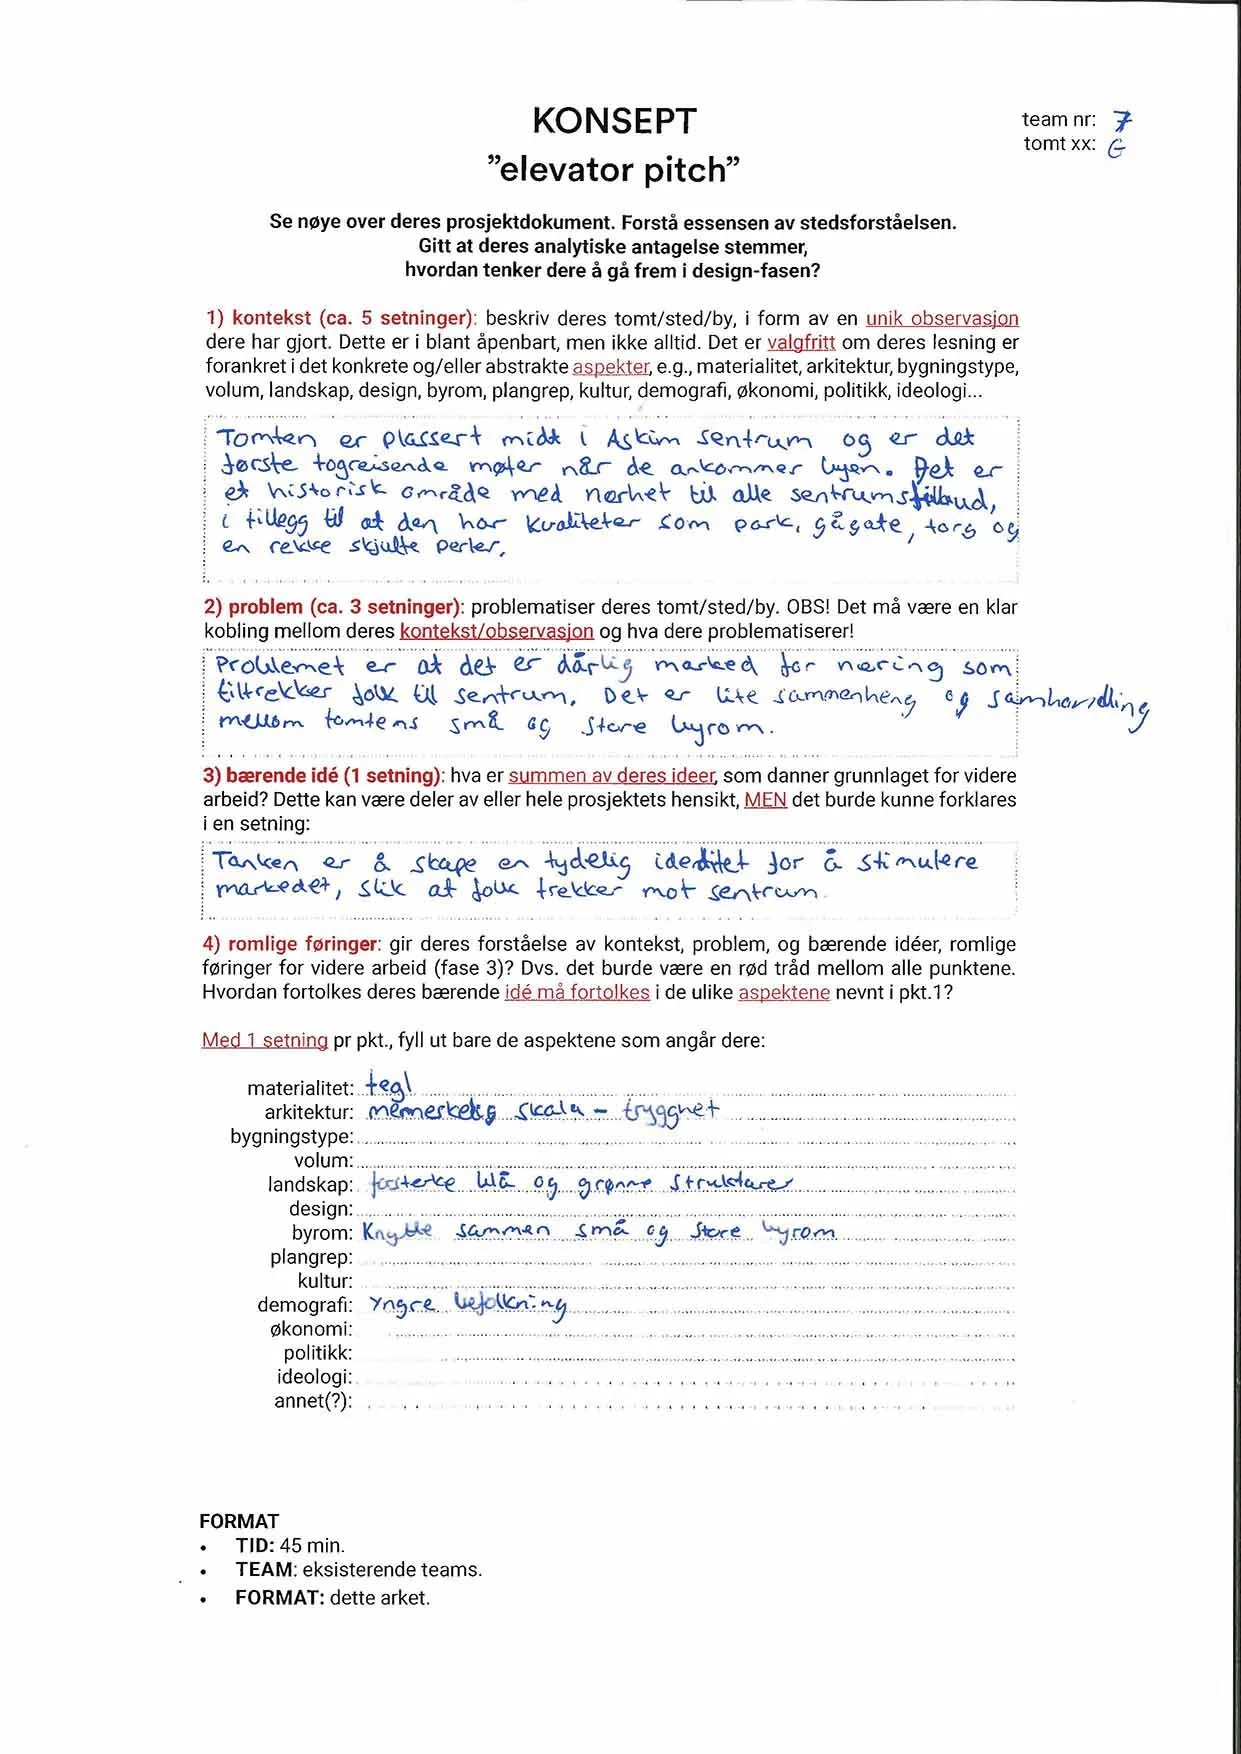 KONSEPT
"elevator pitch"
team nr: 7
tomt xx: G
Se nøye over deres prosjektdokument. Forstå essensen av stedsforståelsen.
Gitt at deres analytiske antagelse stemmer,
hvordan tenker dere å gå frem i design-fasen?
1) kontekst (ca. 5 setninger): beskriv deres tomt/sted/by, i form av en unik observasjon
dere har gjort. Dette er i blant åpenbart, men ikke alltid. Det er valgfritt om deres lesning er
forankret i det konkrete og/eller abstrakte aspekter, e.g., materialitet, arkitektur, bygningstype,
volum, landskap, design, byrom, plangrep, kultur, demografi, økonomi, politikk, ideologi...
Tomten er plassert midt i Askim sentrum og er det
første togreisende møter når de ankommer byen. Det er
et historisk område med nærhet til alle sentrumstilbud,
i tillegg til at den har kvaliteter som park, gågate, torg og
en rekke skjulte perler.
2) problem (ca. 3 setninger): problematiser deres tomt/sted/by. OBS! Det må være en klar
kobling mellom deres kontekst/observasjon og hva dere problematiserer!
Problemet er at det er dårlig marked for næring som
tiltrekker folk til sentrum. Det er lite sammenheng og samhandling
mellom tomtens små og store byrom.
3) bærende idé (1 setning): hva er summen av deres ideer, som danner grunnlaget for videre
arbeid? Dette kan være deler av eller hele prosjektets hensikt, MEN det burde kunne forklares
i en setning:
Tanken er å skape en tydelig identitet for å stimulere
markedet, slik at folk trekker mot sentrum.
4) romlige føringer: gir deres forståelse av kontekst, problem, og bærende idéer, romlige
føringer for videre arbeid (fase 3)? Dvs. det burde være en rød tråd mellom alle punktene.
Hvordan fortolkes deres bærende idé må fortolkes i de ulike aspektene nevnt i pkt.1?
Med 1 setning pr pkt., fyll ut bare de aspektene som angår dere:
materialitet: tegl
arkitektur: menneskelig skala – trygghet
bygningstype:
volum:
landskap: forsterke blå og grønne strukturer
design:
byrom: Knytte sammen små og store byrom
plangrep:
kultur:
demografi: Yngre befolkning
økonomi:
politikk:
ideologi:
annet(?):
FORMAT
• TID: 45 min.
• TEAM: eksisterende teams.
• FORMAT: dette arket.